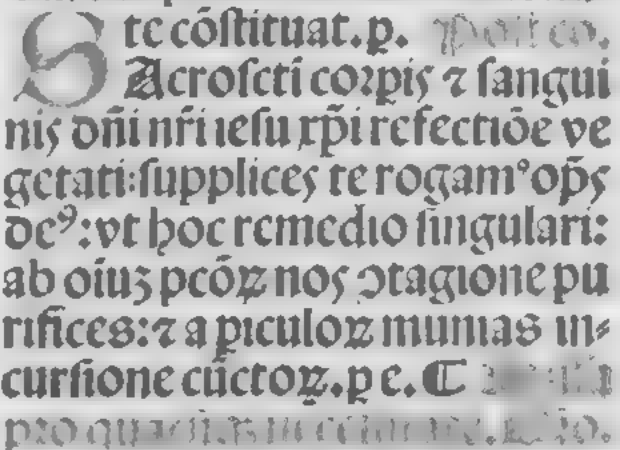 te cōſtituat. p. Poſt co.
SAcroſcti corpis ⁊ ſangui
nis dn̄i nr̄i ieſu xp̄i refectiōe ve
getati: ſupplices te rogamꝰ op̄s
deꝰ: vt hoc remedio ſingulari:
ab oīuꝫ pcōꝝ nos ↄtagione pu
rifices: ⁊ a piculoꝝ munias in⸗
curſione cūctoꝝ. p e. ¶
pro